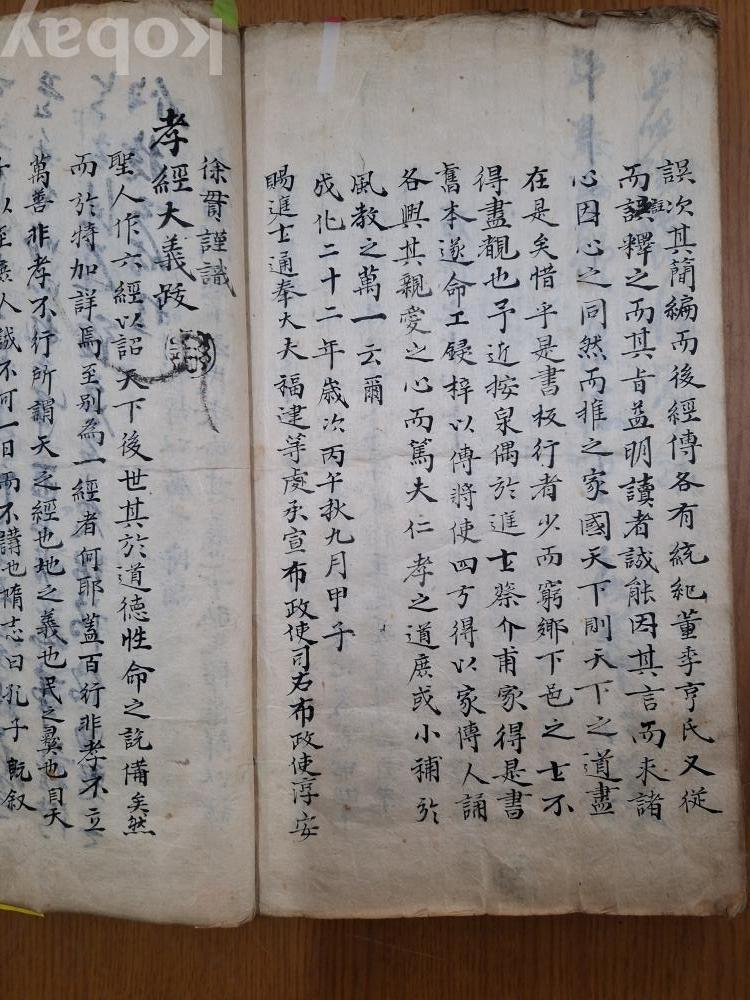 誤次其簡編而後經傳各有統紀董季亨氏又從
而註釋之而其旨益明讀者誠能因其言而求諸
心因心之同然而推之家國天下則天下之道盡
在是矣惜乎是書板行者少而窮鄉下邑之士不
得盡覩也予近按泉偶於進士蔡介甫家得是書
舊本遂命工錄梓以傳將使四方得以家傳人誦
各興其親愛之心而篤夫仁孝之道庶或小補於
風教之萬一云爾
成化二十二年歲次丙午秋九月甲子
賜進士通奉大夫福建等處承宣布政使司右布政使淳安
徐貫謹識
孝經大義跋
聖人作六經以詔天下後世其於道德性命之說備矣然
而於特加詳焉至別為一經者何耶蓋百行非孝不立
萬善非孝不行所謂天之經也地之義也民之彝也自天
子以至庶人誠不可一日而不講也隋志曰孔子既叙
kobay